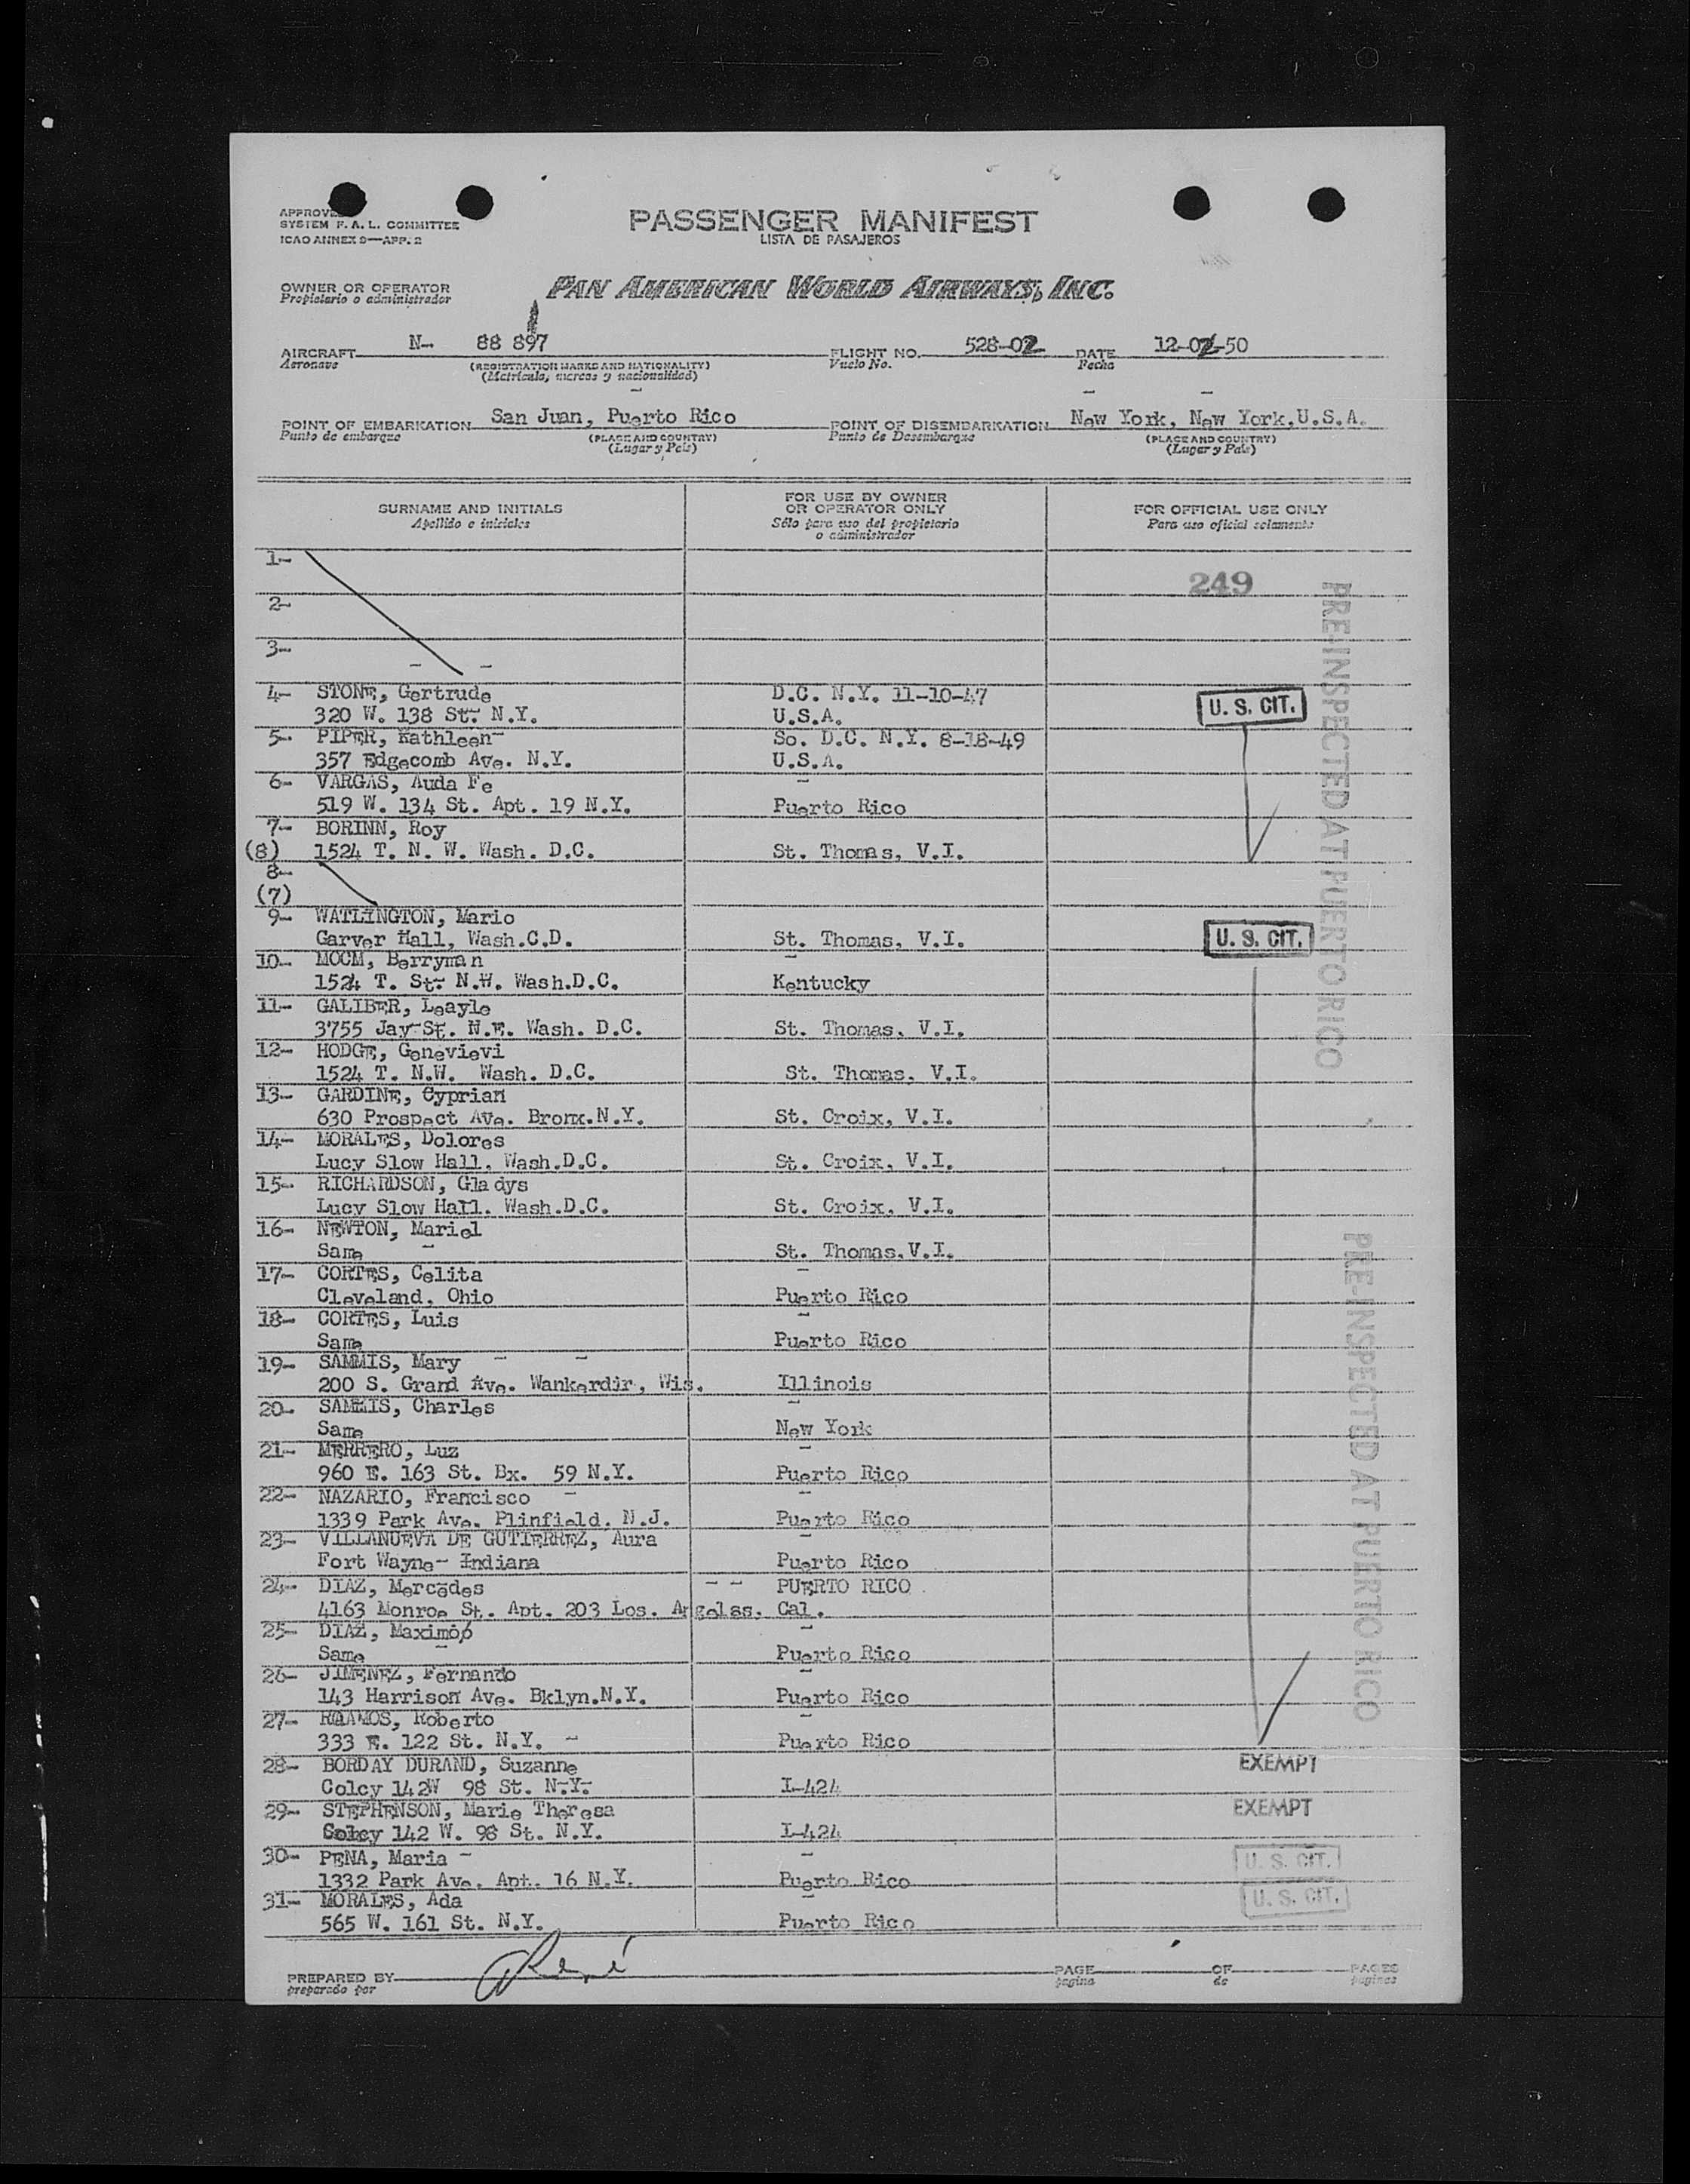 APPROVED
SYSTEM F. A. L. COMMITTEE
ICAO ANNEX 9—APP. 2
PASSENGER MANIFEST
LISTA DE PASAJEROS
OWNER OR OPERATOR
Propietario o administrador
PAN AMERICAN WORLD AIRWAYS, INC.
AIRCRAFT N- 88 897 FLIGHT NO. 528-02 DATE 12-02-50
Aeronave (REGISTRATION MARKS AND NATIONALITY) Vuelo No. Fecha
(Matrícula, marcas y nacionalidad)
POINT OF EMBARKATION San Juan, Puerto Rico POINT OF DISEMBARKATION New York, New York, U.S.A.
Punto de embarque (PLACE AND COUNTRY) Punto de Desembarque (PLACE AND COUNTRY)
(Lugar y País) (Lugar y País)
SURNAME AND INITIALS FOR USE BY OWNER OR OPERATOR ONLY FOR OFFICIAL USE ONLY
Apellido e iniciales Sólo para uso del propietario o administrador Para uso oficial solamente
1-
249
2-
3-
4- STONE, Gertrude D.C. N.Y. 11-10-47
320 W. 138 St. N.Y. U.S.A. U. S. CIT.
5- PIPER, Kathleen So. D.C. N.Y. 8-18-49
357 Edgecomb Ave. N.Y. U.S.A.
6- VARGAS, Auda Fe
519 W. 134 St. Apt. 19 N.Y. Puerto Rico
7- BORINN, Roy
(8) 1524 T. N. W. Wash. D.C. St. Thomas, V.I.
8-
(7)
9- WATLINGTON, Mario
Garver Hall, Wash.C.D. St. Thomas, V.I. U. S. CIT.
10- MOCM, Berryman
1524 T. St. N.W. Wash.D.C. Kentucky
11- GALIBER, Leayle
3755 Jay St. N.E. Wash. D.C. St. Thomas, V.I.
12- HODGE, Genevievi
1524 T. N.W. Wash. D.C. St. Thomas, V.I.
13- GARDINE, Cyprian
630 Prospect Ave. Bronx.N.Y. St. Croix, V.I.
14- MORALES, Dolores
Lucy Slow Hall, Wash.D.C. St. Croix, V.I.
15- RICHARDSON, Gladys
Lucy Slow Hall. Wash.D.C. St. Croix, V.I.
16- NEWTON, Mariel
Same St. Thomas,V.I.
17- CORTES, Celita
Cleveland, Ohio Puerto Rico
18- CORTES, Luis
Same Puerto Rico
19- SAMMIS, Mary
200 S. Grand Ave. Wankerdir, Wis. Illinois
20- SAMMIS, Charles
Same New York
21- MERRERO, Luz
960 E. 163 St. Bx. 59 N.Y. Puerto Rico
22- NAZARIO, Francisco
1339 Park Ave. Plinfield. N.J. Puerto Rico
23- VILLANUEVA DE GUTIERREZ, Aura
Fort Wayne- Indiana Puerto Rico
24- DIAZ, Mercedes PUERTO RICO
4163 Monroe St. Apt. 203 Los. Angelas. Cal.
25- DIAZ, Maximo
Same Puerto Rico
26- JIMENEZ, Fernando
143 Harrison Ave. Bklyn.N.Y. Puerto Rico
27- RAAMOS, Roberto
333 E. 122 St. N.Y. Puerto Rico
28- BORDAY DURAND, Suzanne EXEMPT
Colcy 142W 98 St. N.Y. I-424
29- STEPHENSON, Marie Theresa EXEMPT
Colcy 142 W. 98 St. N.Y. I-424
30- PENA, Maria U. S. CIT.
1332 Park Ave. Apt. 16 N.Y. Puerto Rico
31- MORALES, Ada U. S. CIT.
565 W. 161 St. N.Y. Puerto Rico
PRE-INSPECTED AT PUERTO RICO
PRE-INSPECTED AT PUERTO RICO
PREPARED BY René PAGE OF PAGES
preparado por página de páginas